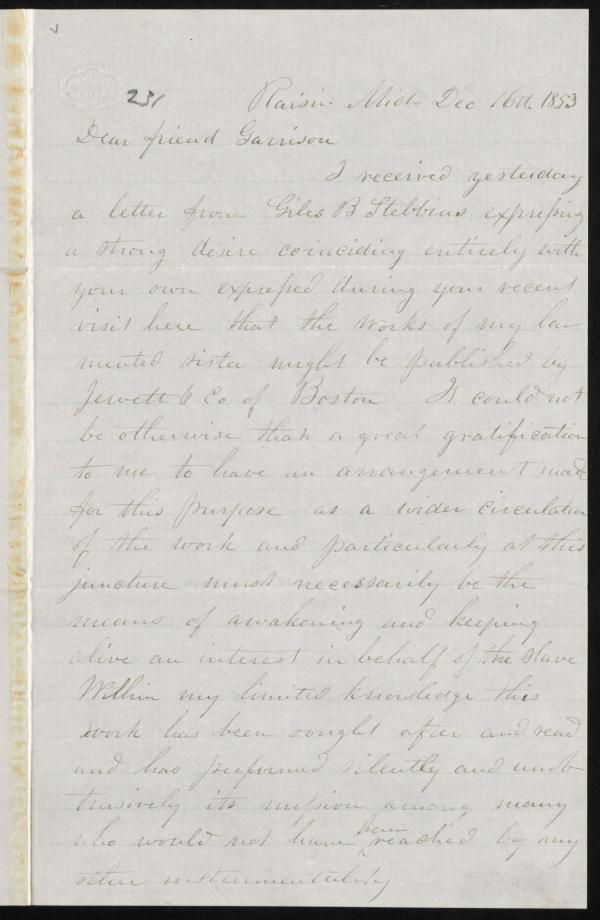 231
Raisin Mich Dec 16th 1853
Dear friend Garrison
I received yesterday
a letter from Giles B Stebbins expressing
a strong desire coinciding entirely with
your own expressed during your recent
visit here that the works of my la
mented sister might be published by
Jewett & Co of Boston It could not
be otherwise than a great gratification
to me to have an arrangement made
for this purpose as a wider circulation
of the work and particularly at this
juncture must necessarily be the
means of awakening and keeping
alive an interest in behalf of the slave
Within my limited knowledge this
work has been sought after and read
and has performed silently and unob
trusively its mission among many
who would not have been reached by any
other instrumentality